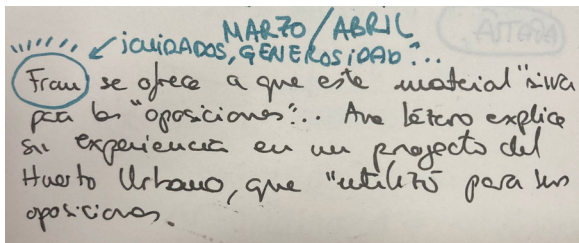 MARZO/ABRIL
¡CUIDADOS, GENEROSIDAD!...
Fran se ofrece a que este material "sirva
para las "oposiciones"... Ana explica
su experiencia en un proyecto del
Huerto Urbano, que "utilizó para sus
oposiciones.